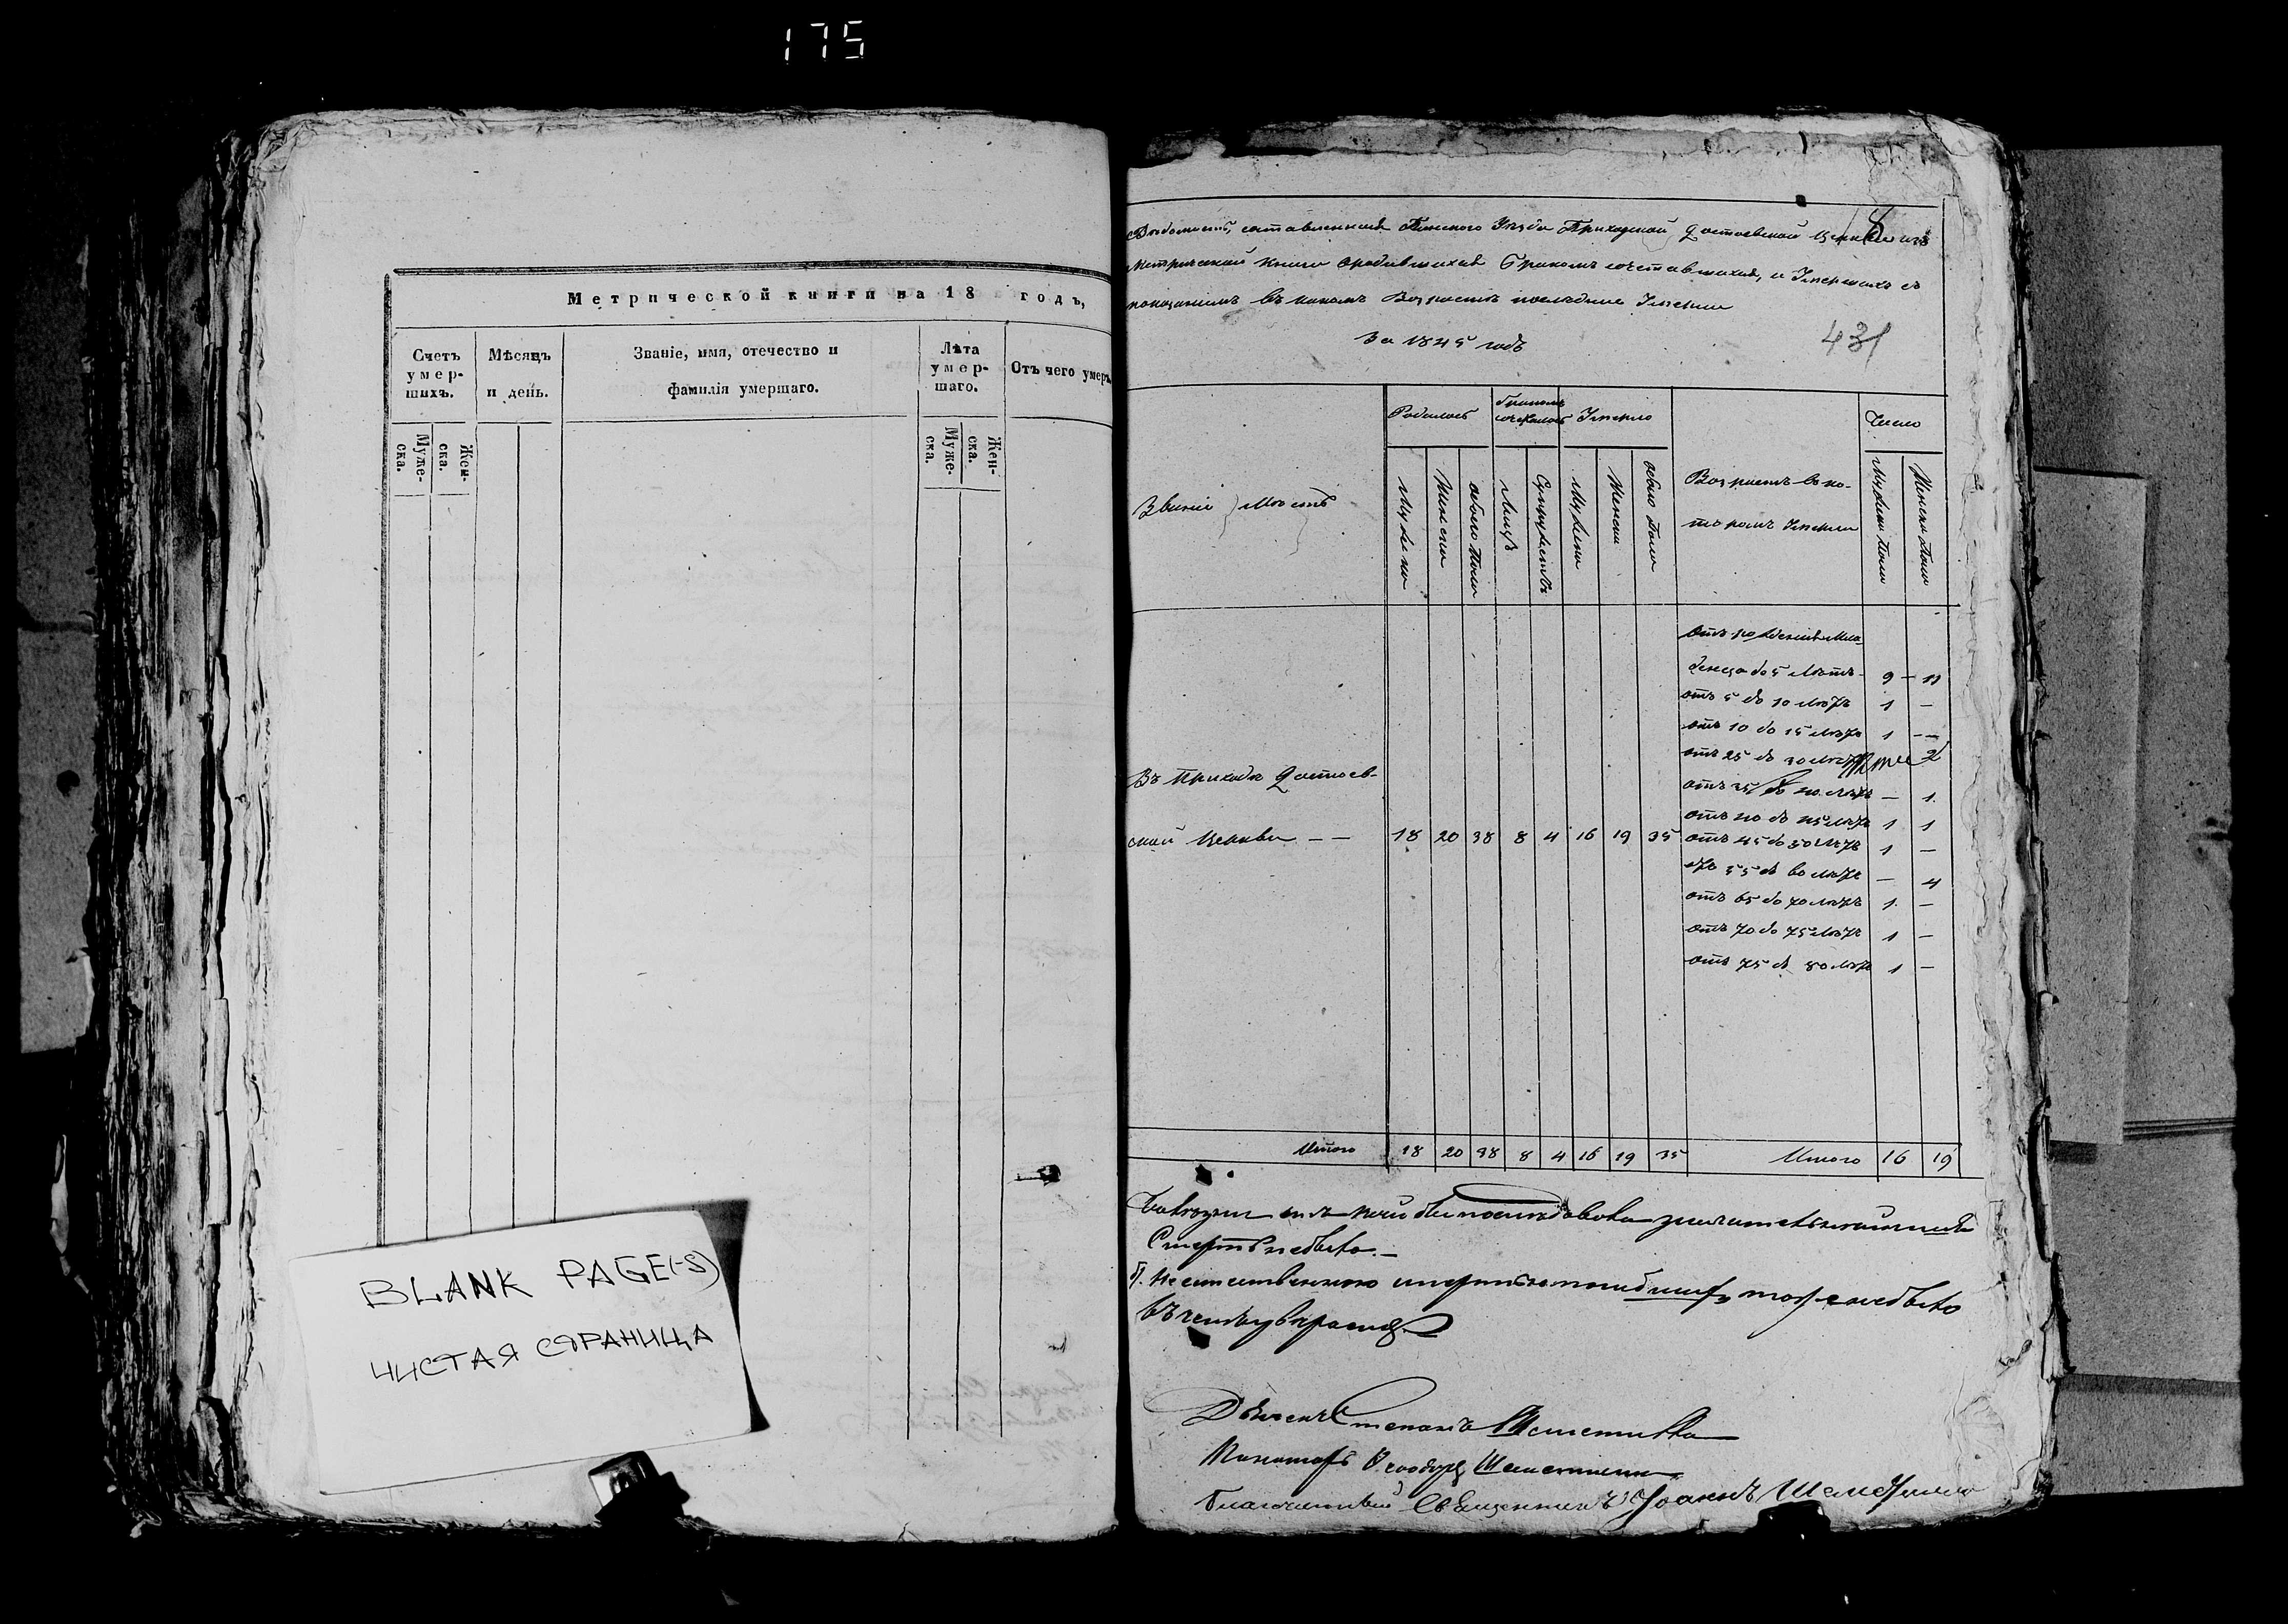 175
Метрической книги на 18 годъ,
Счетъ умер-шихъ.
Мѣсяцъ и день.
Званіе, имя, отечество и фамилія умершаго.
Лѣта умер-шаго.
Отъ чего умеръ
Муже-ска.
Жен-ска.
Муже-ска.
Жен-ска.
BLANK PAGE(-S)
ЧИСТАЯ СТРАНИЦА
Вѣдомость, составленная Пинского Уѣзда Приходской Достоевской Церкви изъ
Метрической книги о родившихся Бракомъ сочетавшихся, и Умершихъ съ
показаніемъ въ какомъ Возрастѣ последние Умерли
За 1845 годъ
431
Званіе Мѣстъ
Родилось
бракомъ сочеталось
Умерло
Возрастъ въ ко-
торомъ Умерли
Число
Мужеска
Женска
обоего пола
Лицъ
Супружествъ
Мужеска
Женска
обоего пола
Мужеска пола
Женска пола
отъ рожденія мла-
денца до 5 лѣтъ 9 — 11
отъ 5 до 10 лѣтъ 1 —
отъ 10 до 15 лѣтъ 1 —
отъ 25 до 30 лѣтъ 2
отъ 35 до 40 лѣтъ — 1
отъ 40 до 45 лѣтъ 1 1
Въ приходѣ Достоев-
ской Церкви — — 18 20 38 8 4 16 19 35
отъ 45 до 50 лѣтъ 1 —
отъ 55 до 60 лѣтъ — 4
отъ 65 до 70 лѣтъ 1 —
отъ 70 до 75 лѣтъ 1 —
отъ 75 до 80 лѣтъ 1 —
Итого 18 20 38 8 4 16 19 35 Итого 16 19
Смерть небыло. —
неестественною смертью погибшихъ тоже небыло
Дьячекъ Степанъ
Пономарь Ѳеодоръ
Благочинный Священникъ Іоаннъ